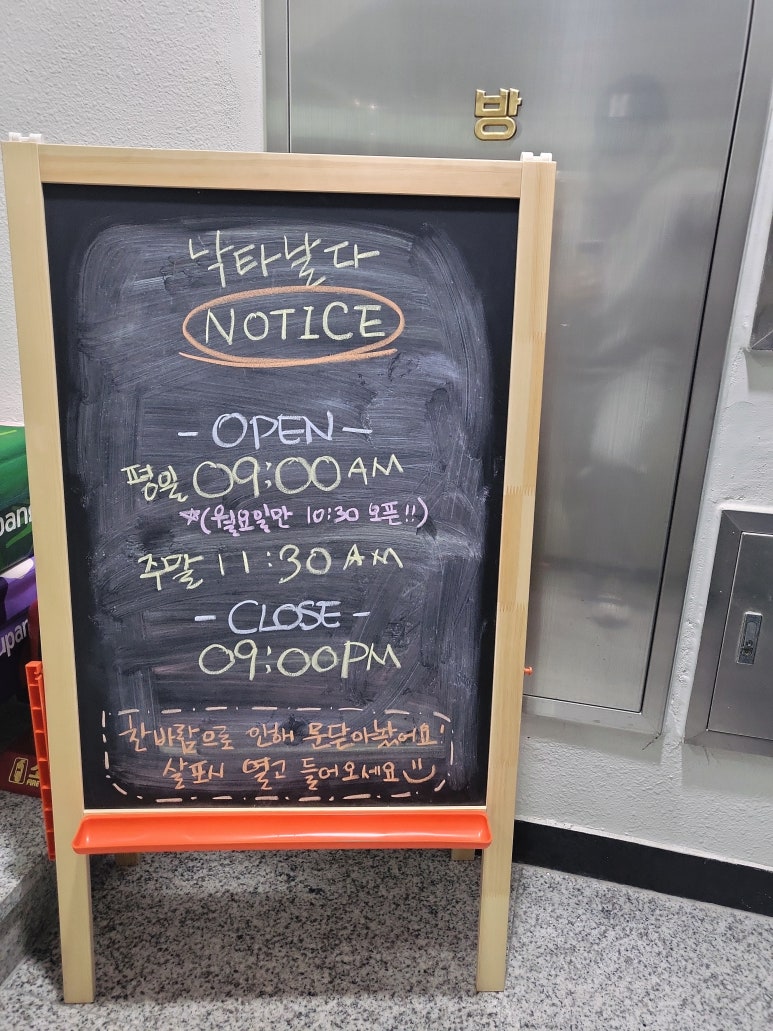 방
낙타날다
NOTICE
- OPEN -
평일 09:00 AM
☆(월요일만 10:30 오픈!!)
주말 11:30 AM
- CLOSE -
09:00PM
찬바람으로 인해 문닫아놨어요
살포시 열고 들어오세요